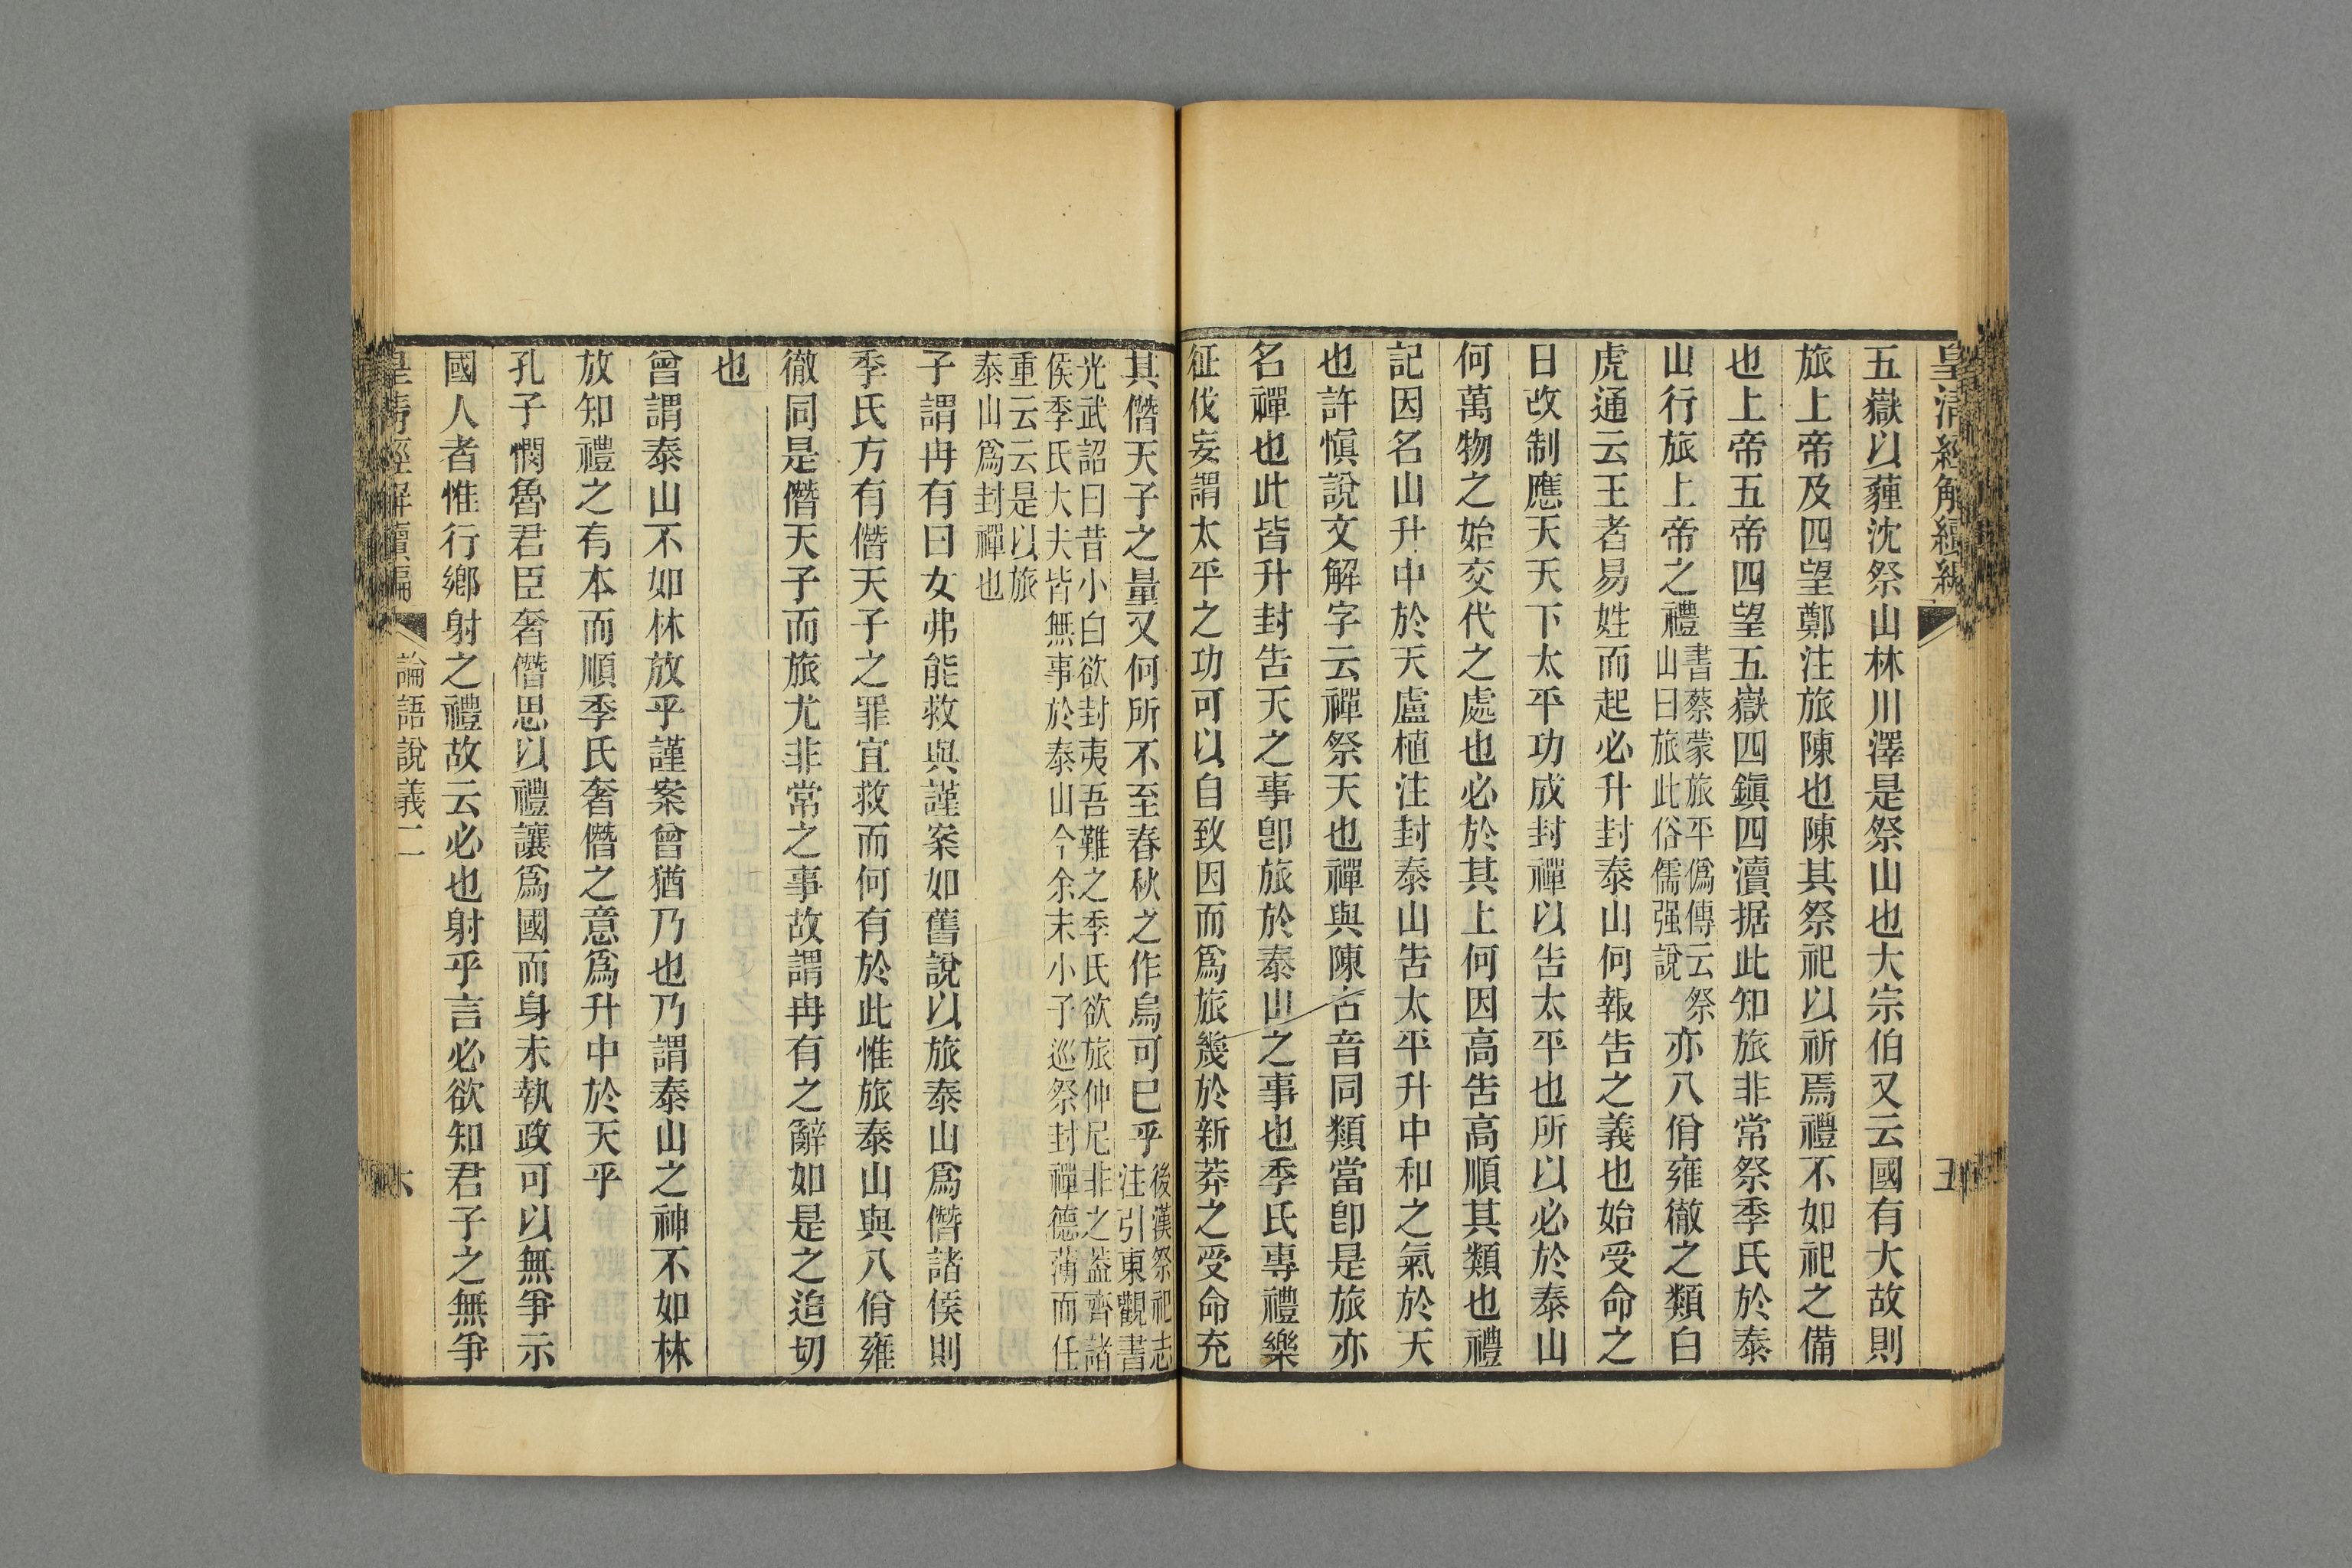 皇清經解續編
五
五嶽以薶沈祭山林川澤是祭山也大宗伯又云國有大故則
旅上帝及四望鄭注旅陳也陳其祭祀以祈焉禮不如祀之備
也上帝五帝四望五嶽四鎭四瀆据此知旅非常祭季氏於泰
山行旅上帝之禮書蔡蒙旅平僞傳云祭山曰旅此俗儒强說亦八佾雍徹之類白
虎通云王者易姓而起必升封泰山何報告之義也始受命之
日改制應天天下太平功成封禪以告太平也所以必於泰山
何萬物之始交代之處也必於其上何因高告高順其類也禮
記因名山升中於天盧植注封泰山告太平升中和之氣於天
也許愼說文解字云禪祭天也禪與陳古音同類當卽是旅亦
名禪也此皆升封告天之事卽旅於泰山之事也季氏專禮樂
征伐妄謂太平之功可以自致因而爲旅幾於新莽之受命充
其僭天子之量又何所不至春秋之作烏可已乎後漢祭祀志注引東觀書
光武詔曰昔小白欲封夷吾難之季氏欲旅仲尼非之葢齊諸
侯季氏大夫皆無事於泰山今余末小子巡祭封禪德薄而任
重云云是以旅
泰山爲封禪也
子謂冉有曰女弗能救與謹案如舊說以旅泰山爲僭諸侯則
季氏方有僭天子之罪宜救而何有於此惟旅泰山與八佾雍
徹同是僭天子而旅尤非常之事故謂冉有之辭如是之迫切
也
曾謂泰山不如林放乎謹案曾猶乃也乃謂泰山之神不如林
放知禮之有本而順季氏奢僭之意爲升中於天乎
孔子憫魯君臣奢僭思以禮讓爲國而身未執政可以無爭示
國人者惟行鄉射之禮故云必也射乎言必欲知君子之無爭
皇清經解續編
論語說義二
六